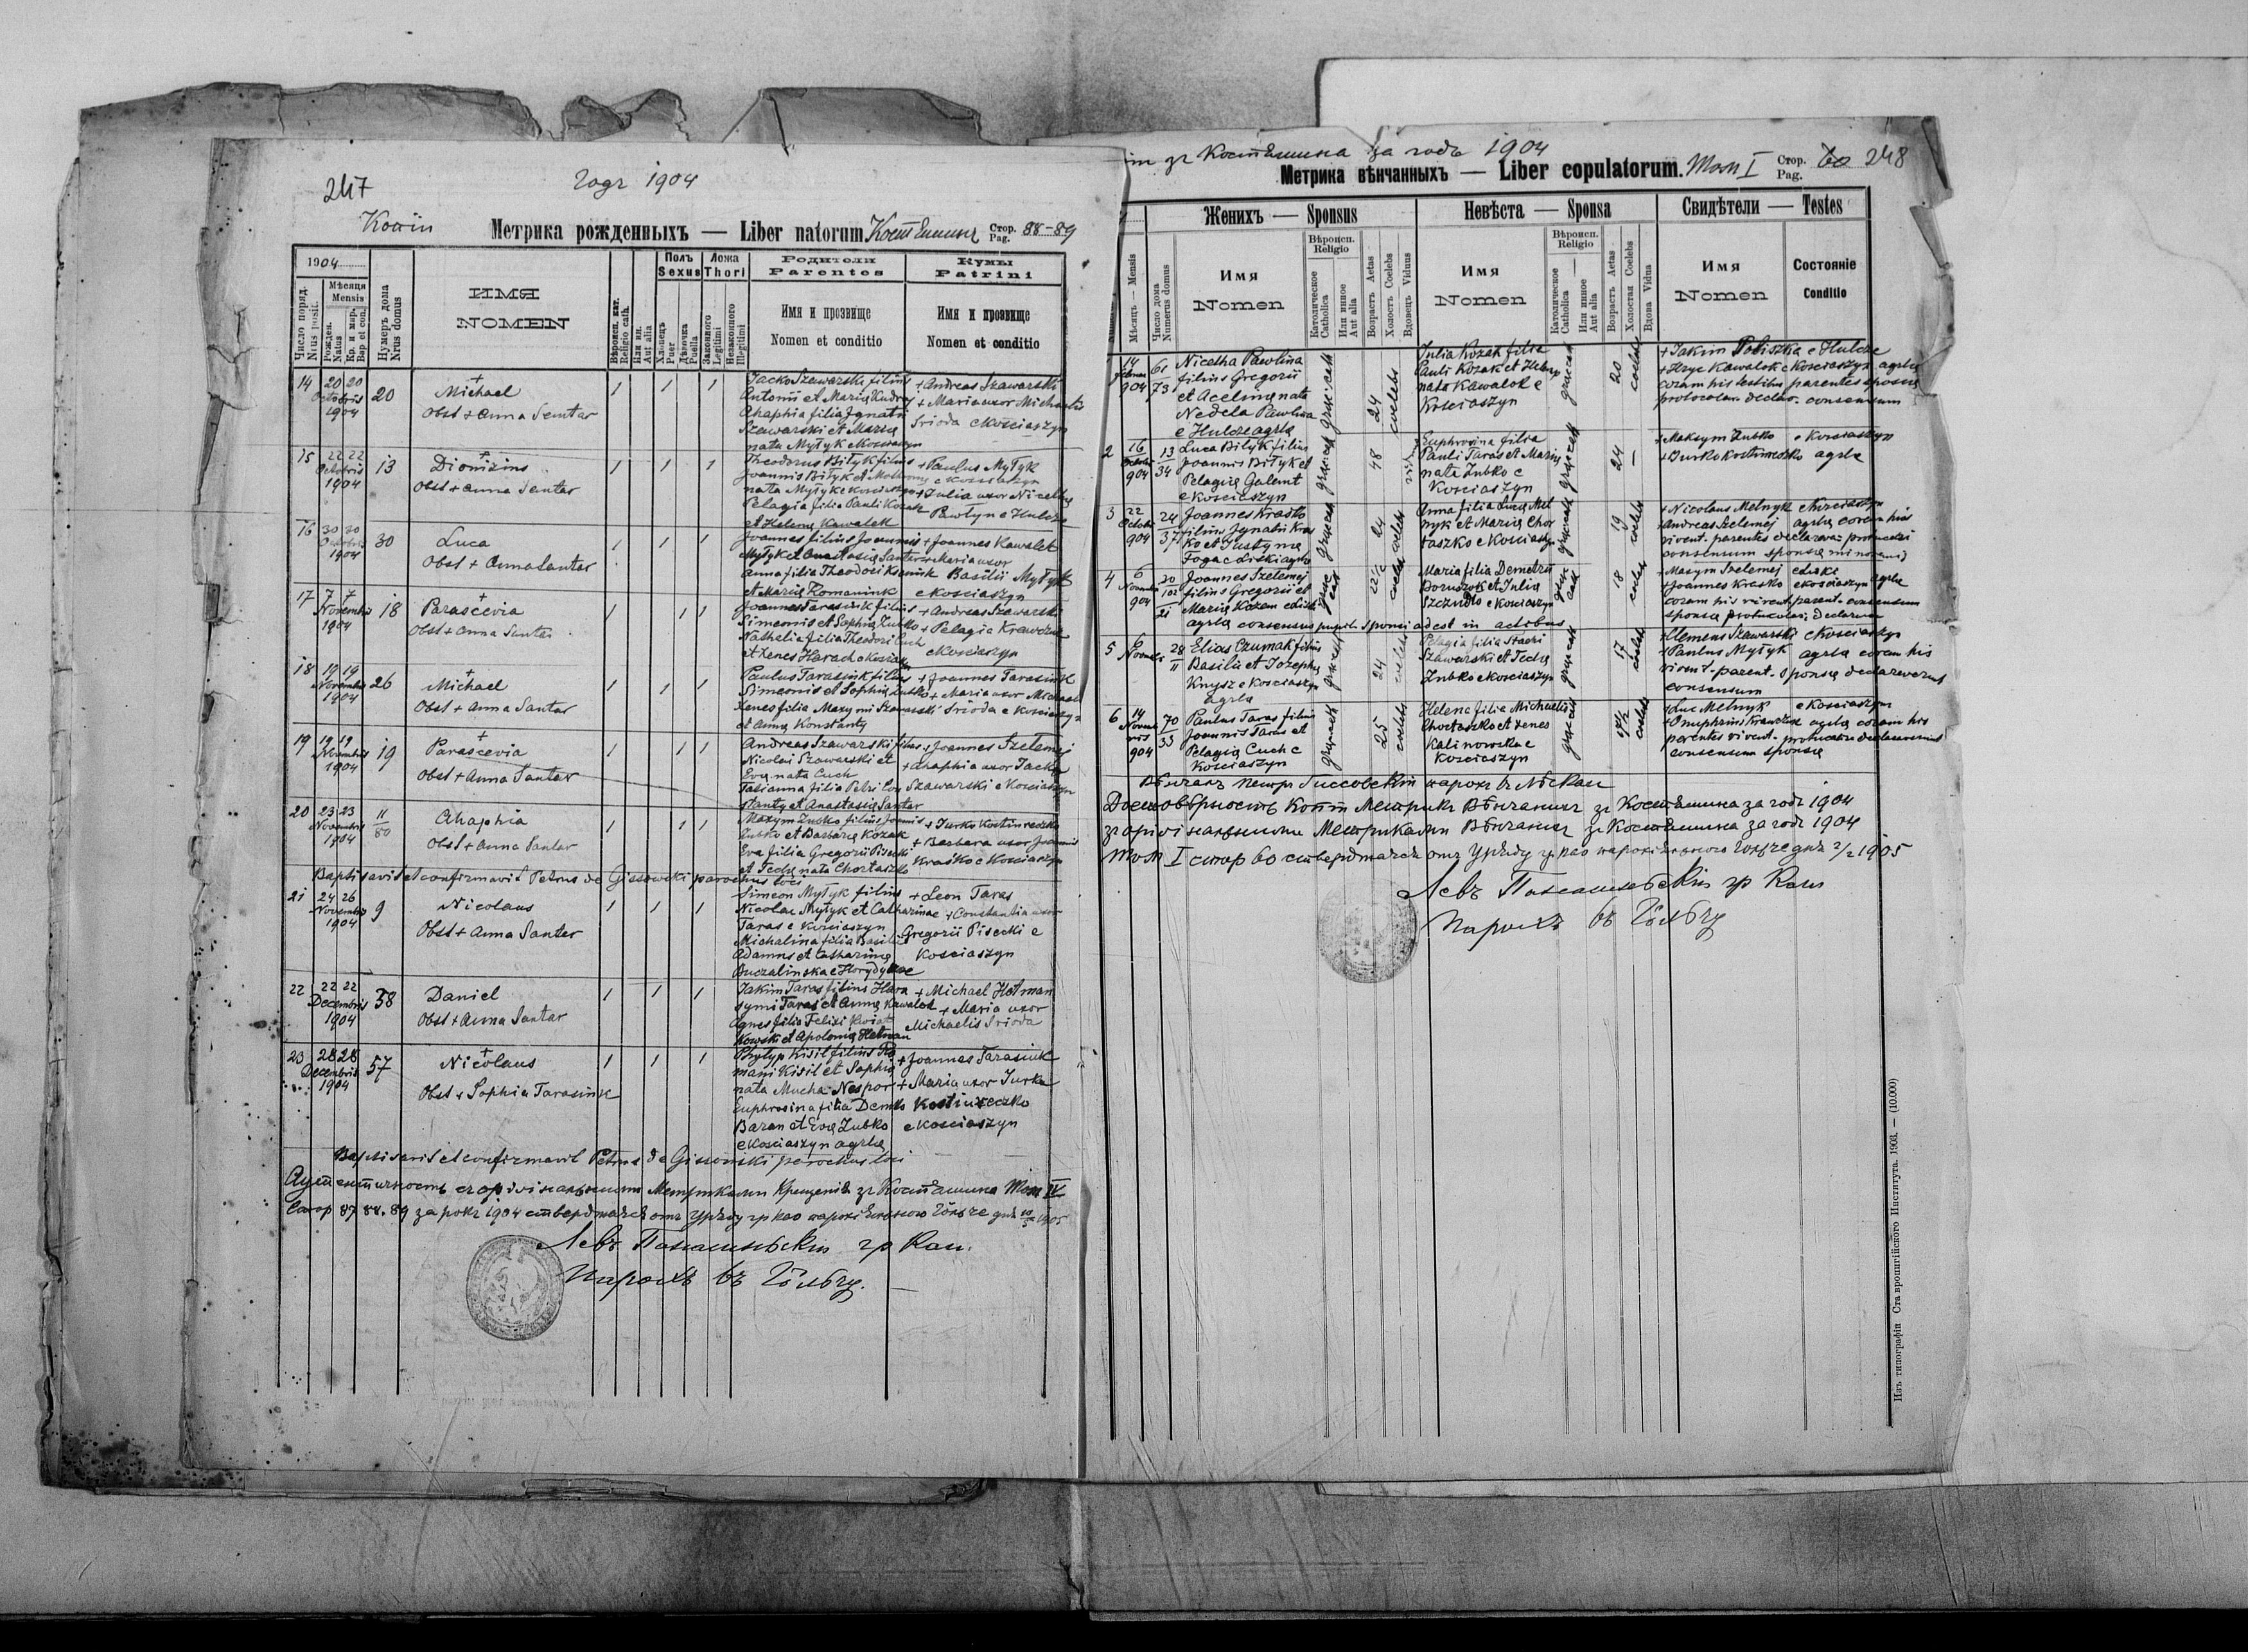 247
Годъ 1904
Копія
Метрика рожденныхъ — Liber natorum Костяшинъ Стор. Pag. 88-89
1904
Число поряд. Nrus posit.
Мѣсяця Mensis
Рожден. Natus
Кр. и мѵр. Bap et con.
Нумеръ дома Nrus domus
ИМЯ
NOMEN
Вѣроисп. кат. Religio cath.
Или ин. Aut alia
Полъ Sexus
Хлопецъ Puer
Дѣвочка Puella
Ложа Thori
Законного Legitimi
Незаконного Illegitimi
Родители Parentes
Имя и прозвище
Nomen et conditio
Кумы Patrini
Имя и прозвище
Nomen et conditio
14 20 20 Octobris 1904 20
Michael
Obst + Anna Santar
1 1 1
Jacko Szawarski filius
Antonii et Mariæ Kudra
Ahaphia filia Ignatii
Szawarski et Mariæ
nata Mytyk e Kosciaszyn
+ Andreas Szawarski
+ Maria uxor Michaelis
Srioda e Kosciaszyn
15 22 22 Octobris 1904 13
Dionizius
Obst + Anna Santar
1 1 1
Theodorus Bityk filius
Joannis Bityk et
nata Mytyk e Kosciaszyn
Pelagia filia Pauli Kozak
et Helenæ Kawalek
+ Paulus Mytyk
e Kosciaszyn
+ Julia uxor Nicethæ
Pawlyn e Hulcze
16 30 30 Octobris 1904 30
Luca
Obst + Anna Santar
1 1 1
Joannes filius Joannis
Mytyk et Anastasiæ Santar
Anna filia Theodori
et Mariæ Romaniuk
+ Joannes Kawalek
+ Maria uxor
Basilii Mytyk
e Kosciaszyn
17 7 7 Novembris 1904 18
Parascevia
Obst + Anna Santar
1 1 1
Joannes Tarasiuk filius
Simeonis et Sophiæ Zubko
Nathalia filia Theodori Cuch
et Xenes Harach e Kosciaszyn
+ Andreas Szawarski
+ Pelagia Krawczuk
e Kosciaszyn
18 19 19 Novembris 1904 26
Michael
Obst + Anna Santar
1 1 1
Paulus Tarasiuk filius
Simeonis et Sophiæ Zubko
Xenes filia Maxymi Szawarski
et Annæ Konstanty
+ Joannes Tarasiuk
+ Maria uxor Michael
Srioda e Kosciaszyn
19 19 19 Novembris 1904 19
Parascevia
Obst + Anna Santar
1 1 1
Andreas Szawarski filius
Nicolai Szawarski et
Evæ nata Cuch
Tatianna filia Petri Con
stanty et Anastasiæ Santar
+ Joannes Szelemej
+ Ahaphia uxor Jacko
Szawarski e Kosciaszyn
20 23 23 Novembris 1904 11/80
Ahaphia
Obst + Anna Santar
1 1 1
Maxym Zubko filius Joannis
Zubko et Barbaræ Kozak
Eva filia Gregorii Pisecki
et Teclæ nata Chortaszko
+ Jurko Kostiureczko
+ Barbara uxor Joannis
Krasko e Kosciaszyn
Baptisavit et confirmavit Petrus de Gissowski parochus loci
21 24 26 Novembris 1904 9
Nicolaus
Obst + Anna Santar
1 1 1
Simeon Mytyk filius
Nicolai Mytyk et Catharinae
Taras e Kosciaszyn
Michalina filia Basilii
Adamus et Catharinæ
Buczalinska e Horydyszcze
+ Leon Taras
+ Constantia uxor
Gregorii Pisecki e
Kosciaszyn
22 22 22 Decembris 1904 58
Daniel
Obst + Anna Santar
1 1 1
Jakim Taras filius Hara
symi Taras et Annæ Kawalek
Agnes filia Felixi Kwiat
kowski et Apoloniæ Hetman
+ Michael Hetman
+ Maria uxor
Michaelis Srioda
23 28 28 Decembris 1904 57
Nicolaus
Obst + Sophia Tarasiuk
1 1 1
Phylyp Kisil filius Ro
mani Kisil et Sophiæ
nata Mucha Nespor
Euphrosina filia Demko
Baran et Evæ Zubko
e Kosciaszyn agrlæ
+ Joannes Tarasiuk
+ Maria uxor Jurka
Kostiureczko
e Kosciaszyn
Baptisavit et confirmavit Petrus de Gissowski parochus loci
Аутентичность съ оріґінальными Метриками Крещенія зъ Костяшина Томъ IV
Стор 87. 88. 89 за рокъ 1904 стверджаєся отъ Уряду гр кат парохіяльного
Левъ гр Кат.
Парохъ въ
зъ Костяшина за годъ 1904
Метрика вѣнчанныхъ — Liber copulatorum. Томъ I Стор. Pag. 60 248
Мѣсяць — Mensis
Число дома Numerus domus
Женихъ — Sponsus
Имя
Nomen
Вѣроисп. Religio
Католическое Catholica
Или инное Aut alia
Возрастъ Aetas
Холостъ Coelebs
Вдовець Viduus
Невѣста — Sponsa
Имя
Nomen
Вѣроисп. Religio
Католическое Catholica
Или инное Aut alia
Возрастъ Aetas
Холостая Coelebs
Вдова Vidua
Свидѣтели — Testes
Имя
Nomen
Состояніе
Conditio
14 904 61 73
Nicetha Pawlina
filius Gregorii
et Acelinæ nata
Nedela Pawlina
e Hulcze agrlæ
graec. cath 24 coelebs
Julia Kozak filia
Pauli Kozak et Helenæ
nata Kawalok e
Kosciaszyn
graec cath 20 coelebs
+ Jakim Poliszka e Hulcze
+ Hryc Kawalok e Kosciaszyn agrlæ
coram his testibus parentes sponsæ
protocolar. declar. consensum
2 16 Octobris 904 13 34
Luca Bilyk filius
Joannis Bityk et
Pelagiæ Galent
e Kosciaszyn
graec cath 48
Euphrosina filia
Pauli Taras et Mariæ
nata Zubko e
Kosciaszyn
graec cath 24 —
+ Maksym Zubko e Kosciaszyn
+ Jurko Kostiureczko agrlæ
3 22 Octobr 904 24 37
Joannes Krasko
filius Ignatii Kras
ko et Justynæ
Foga e Liski agrlæ
graec cath 24 coelebs
Anna filia Lucæ Mel
nyk et Mariæ Chor
taszko e Kosciaszyn
graec cath 19 coelebs
+ Nicolaus Melnyk e Kosciaszyn
+ Andreas Szelemej agrlæ coram his
vivent. parentes declarav. protocol.
consensum sponsæ minorenis
4 6 Novembr 904 20 102 21
Joannes Szelemej
filius Gregorii et
Mariæ Kozam e Liski
agrlæ consensus pupil. sponsi adest in actibus
graec cath 22 1/2 coelebs
Maria filia Demetrii
Bornszok et Juliæ
Szczudlo e Kosciaszyn
graec cath 18 coelebs
+ Maxym Szelemej e Liski
+ Joannes Krasko e Kosciaszyn agrlæ
coram his vivent. parent. consensum
sponsæ protocolar. declarar.
5 6 Novembris 28 11
Elias Czumak filius
Basilii et Jozephæ
Knysz e Kosciaszyn
agrlæ
graec cath 24 coelebs
Pelagia filia
Szawarski et Teclæ
Zubko e Kosciaszyn
graec cath 17 coelebs
+ Clemens Szawarski e Kosciaszyn
+ Paulus Mytyk agrlæ coram his
vivent. parent. sponsæ declaraverunt
consensum
6 14 Novembris 904 70 33
Paulus Taras filius
Joannis Taras et
Pelagiæ Cuch e
Kosciaszyn
graec cath 25 coelebs
Helena filia Michaelis
Chortaszko et Xenes
Kalinowska e
Kosciaszyn
graec cath coelebs
+ Luc Melnyk e Kosciaszyn
+ Onuphrius Krawczuk agrlæ coram his
parentes vivent. protocolar. declaraverunt
consensum sponsæ
Вѣнчалъ Петръ Гиссовскій парохъ
Достовѣрность копіи Метрикъ Вѣнчаныхъ зъ Костяшина за годъ 1904
зъ оріґінальными Метриками Вѣнчаныхъ зъ Костяшина за годъ 1904
Томъ I стор 60 стверджаєся отъ Уряду гр кат парохіяльного дня 2/2 1905
Левъ гр Кат
Парохъ въ
Изъ типографіи Ставропигійского Института. 1903. — (10.000)